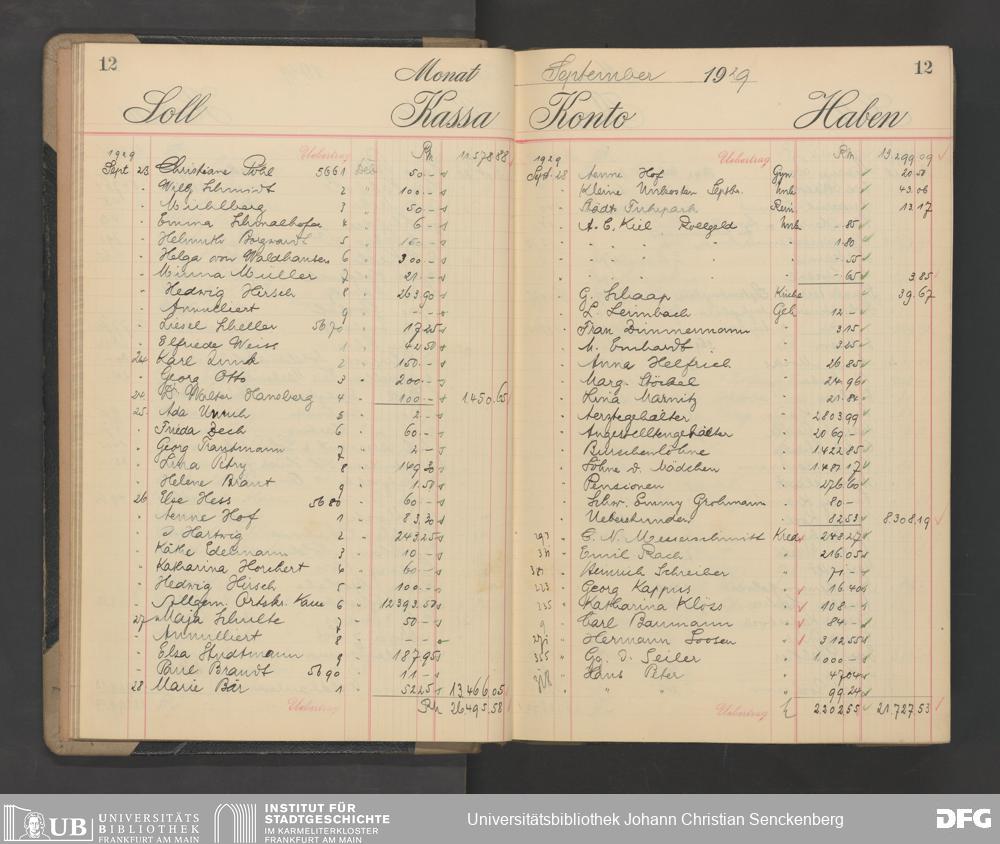 12
Monat
Soll Kassa
1929 Uebertrag Rm 11.578 88
Sept 23 Christiane Pohl 5661 50 -
" Willy Schmidt 2 100 -
" Muhlberg 3 50 -
" Emma Schmalhofer 4 6 -
" Helmuth Borgwardt 5
" Helga von Waldhausen 6 300 -
" Minna Müller 7 21 -
" Hedwig Hirsch 8 263.90
" Annulliert 9 - -
" Liesel Scheller 5670 17 25
" Elfriede Weiss 1 42 50
24 Karl 2 150 -
" Georg Otto 3 200 -
24 Dr Walter Hansberg 4 100 - 1450.65
25 Ada Unruh 5 2 -
" Frieda Zech 6 60 -
" Georg Trautmann 7 2 -
" Petry 8 149
" Helene Braut 9 1.50
26 Else Hess 5680 60 -
" Aenne Hof 1 83.30
" Hartwig 2 243 25
" Käthe Edelmann 3 10 -
" Katharina Horchert 4 60 -
" Hedwig Hirsch 5 100 -
" Allgem. Ortskr. Kasse 6 12393.50
27 Maja Schulte 7 50 -
" Annulliert 8 - -
" Elsa Studtmann 9 187 95
" Paul Brandt 5690 11 -
28 Marie Bär 1 52 25 13.466.05
Uebertrag Rm 26495.58
September 1929 12
Konto Haben
1929 Uebertrag Rm 13.299 09
Sept. 28 Aenne Hof Gyn 20 50
" Kleine Unkosten Septbr. Unk 43.06
" Städt Fuhrpark Rein 13.17
" A. E. Kiel Rollgeld Unk - 85
" " " " 1 80
" " " " - 55
" " " " - 65 3.85
" G. Schaap Küche 39.67
" L. Leimbach Geh 12 -
" Frau Dimmermann " 3 15
" M. Emhardt "
" Anna Helfrich " 26 85
" Marg. Stöckel " 24 96
" Lina Marnitz " 21.84
" Aerztegehälter " 2803 99
" Angestelltengehälter " 2069 -
" Burschenlöhne " 1422 85
" Löhne d. Mädchen "
" Pensionen " 276.60
" Schw. Emmy Grohmann " 80 -
" Ueberstunden " 82 53 8.308.19
" E. N. Messerschmitt Kred 243 27
" Emil Rach " 216.05
" Heinrich Schreiber " 71 -
223 " Georg Kappus 16 40
235 " Katharina Klöss 108 -
9 " Carl Baumann 84 -
" Hermann Loosen 312 55
355 " Gg. D. Seiler " 1000 -
" Hans Peter " 47 04
" " " 99.24
Uebertrag 2202 55 21.727 53
UB UNIVERSITÄTS
BIBLIOTHEK
FRANKFURT AM MAIN
INSTITUT FÜR
STADTGESCHICHTE
IM KARMELITERKLOSTER
FRANKFURT AM MAIN
Universitätsbibliothek Johann Christian Senckenberg
DFG